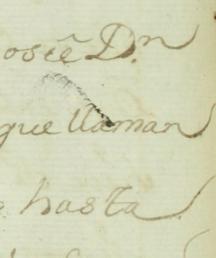 osẽ D.n
que llaman
hasta